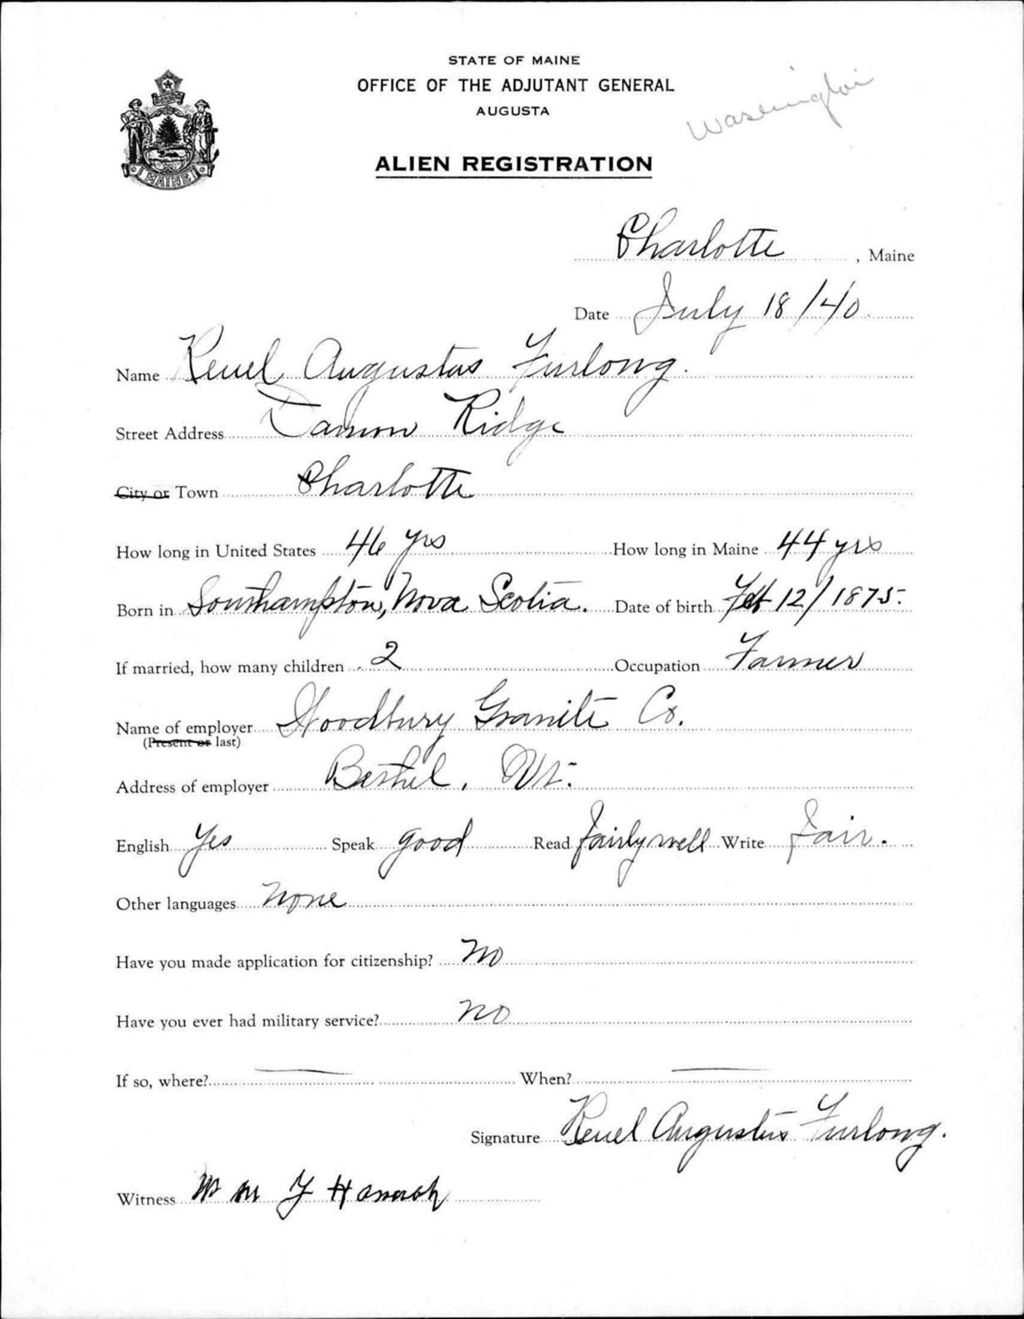 STATE OF MAINE
OFFICE OF THE ADJUTANT GENERAL
AUGUSTA
ALIEN REGISTRATION
MAINE
Charlotte, Maine
Date July 18/40
Name Reuel Augustus Furlong.
Street Address Damon Ridge
City or Town Charlotte
How long in United States 46 yrs How long in Maine 44 yrs
Born in Southampton, Nova Scotia. Date of birth Feb 12/1875.
If married, how many children 2 Occupation Farmer
Name of employer Woodbury Granite Co.
(Present or last)
Address of employer Bethel, Vt.
English Yes Speak good Read fairly well Write Fair.
Other languages None
Have you made application for citizenship? No
Have you ever had military service? No
If so, where? When?
Signature Reuel Augustus Furlong.
Witness Wm Y